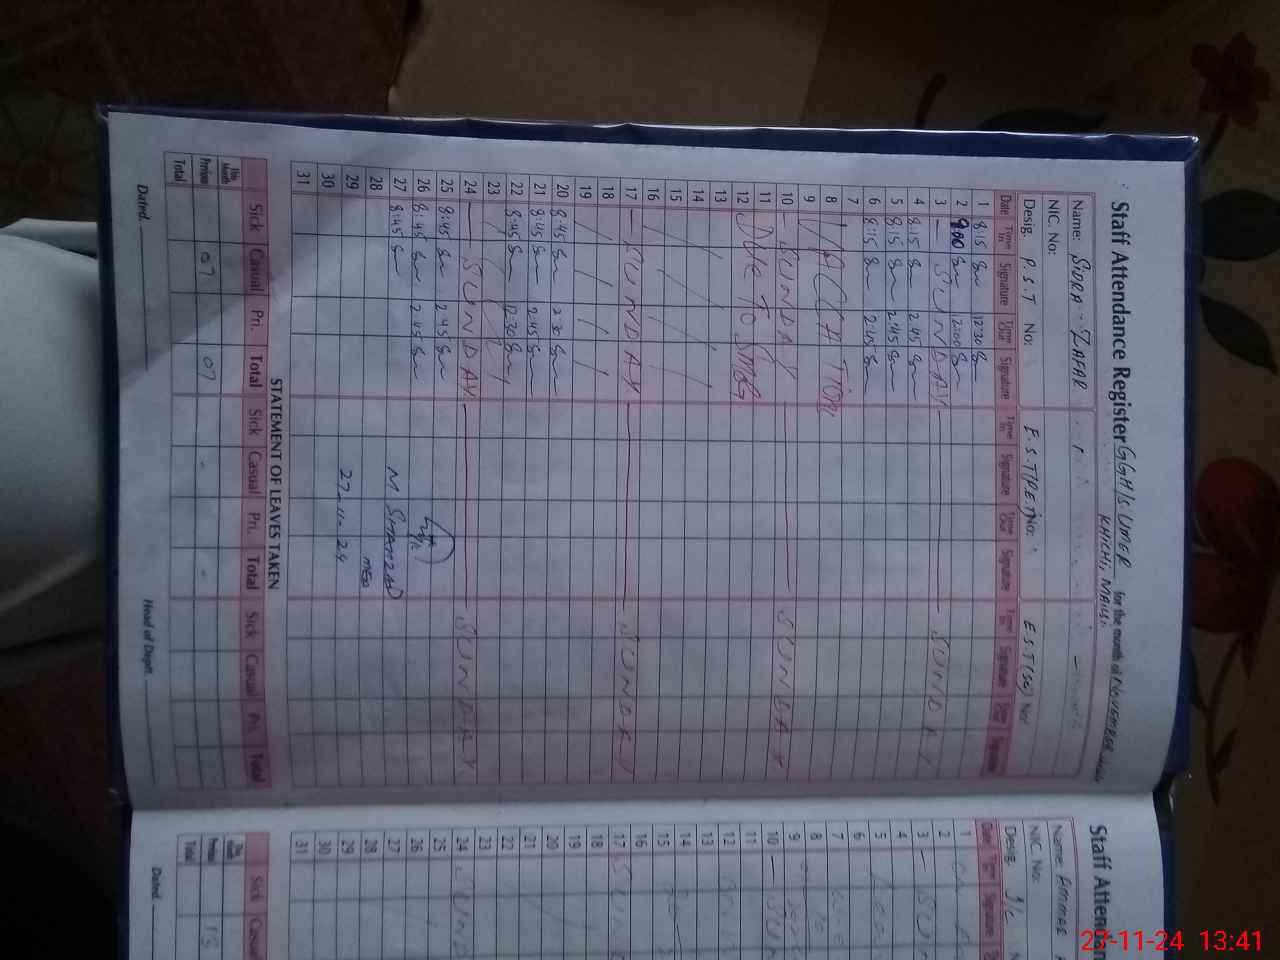 Staff Attendance Register GGH/s UMER for the month of November
KHICHI, MAILSI.
Name: SIDRA ZAFAR
NIC. No:
Desig. P.S.T No: E.S.T(P.E.T) No: E.S.T(sc) No:
Date Time In Signature Time Out Signature Time In Signature Time Out Signature Time In Signature Time Out Signature
1 8:15 12:30
2 9:00 12:00
3 — SUNDAY — SUNDAY
4 8:15 2:45
5 8:15 2:45
6 8:15 2:45
7
8 VACCATION
9
10 — SUNDAY — SUNDAY
11
12 Due To SMOG
13
14
15
16
17 — SUNDAY — SUNDAY
18
19
20 8:45 2:30
21 8:45 2:45
22 8:45 12:30
23
24 — SUNDAY — SUNDAY
25 8:45 2:45
26 8:45 2:45
27 8:45
28
29
30
31
M SHAHZAD
MEO
27-11-24
STATEMENT OF LEAVES TAKEN
Sick Casual Pri. Total Sick Casual Pri. Total Sick Casual Pri. Total
This Month
Previous 07 07 - -
Total
Dated. Head of Deptt.
Staff Atten
Name: AMMAR
NIC. No:
Desig. J/c
Date Time In Signature
1
2
3 — SUN
4
5
6
7
8
9
10 — SUN
11
12
13
14
15
16
17 SUN
18
19
20
21
22
23
24 SUND
25
26
27
28
29
30
31
Sick Casual
This Month
Previous 13
Total
Dated.
27-11-24 13:41